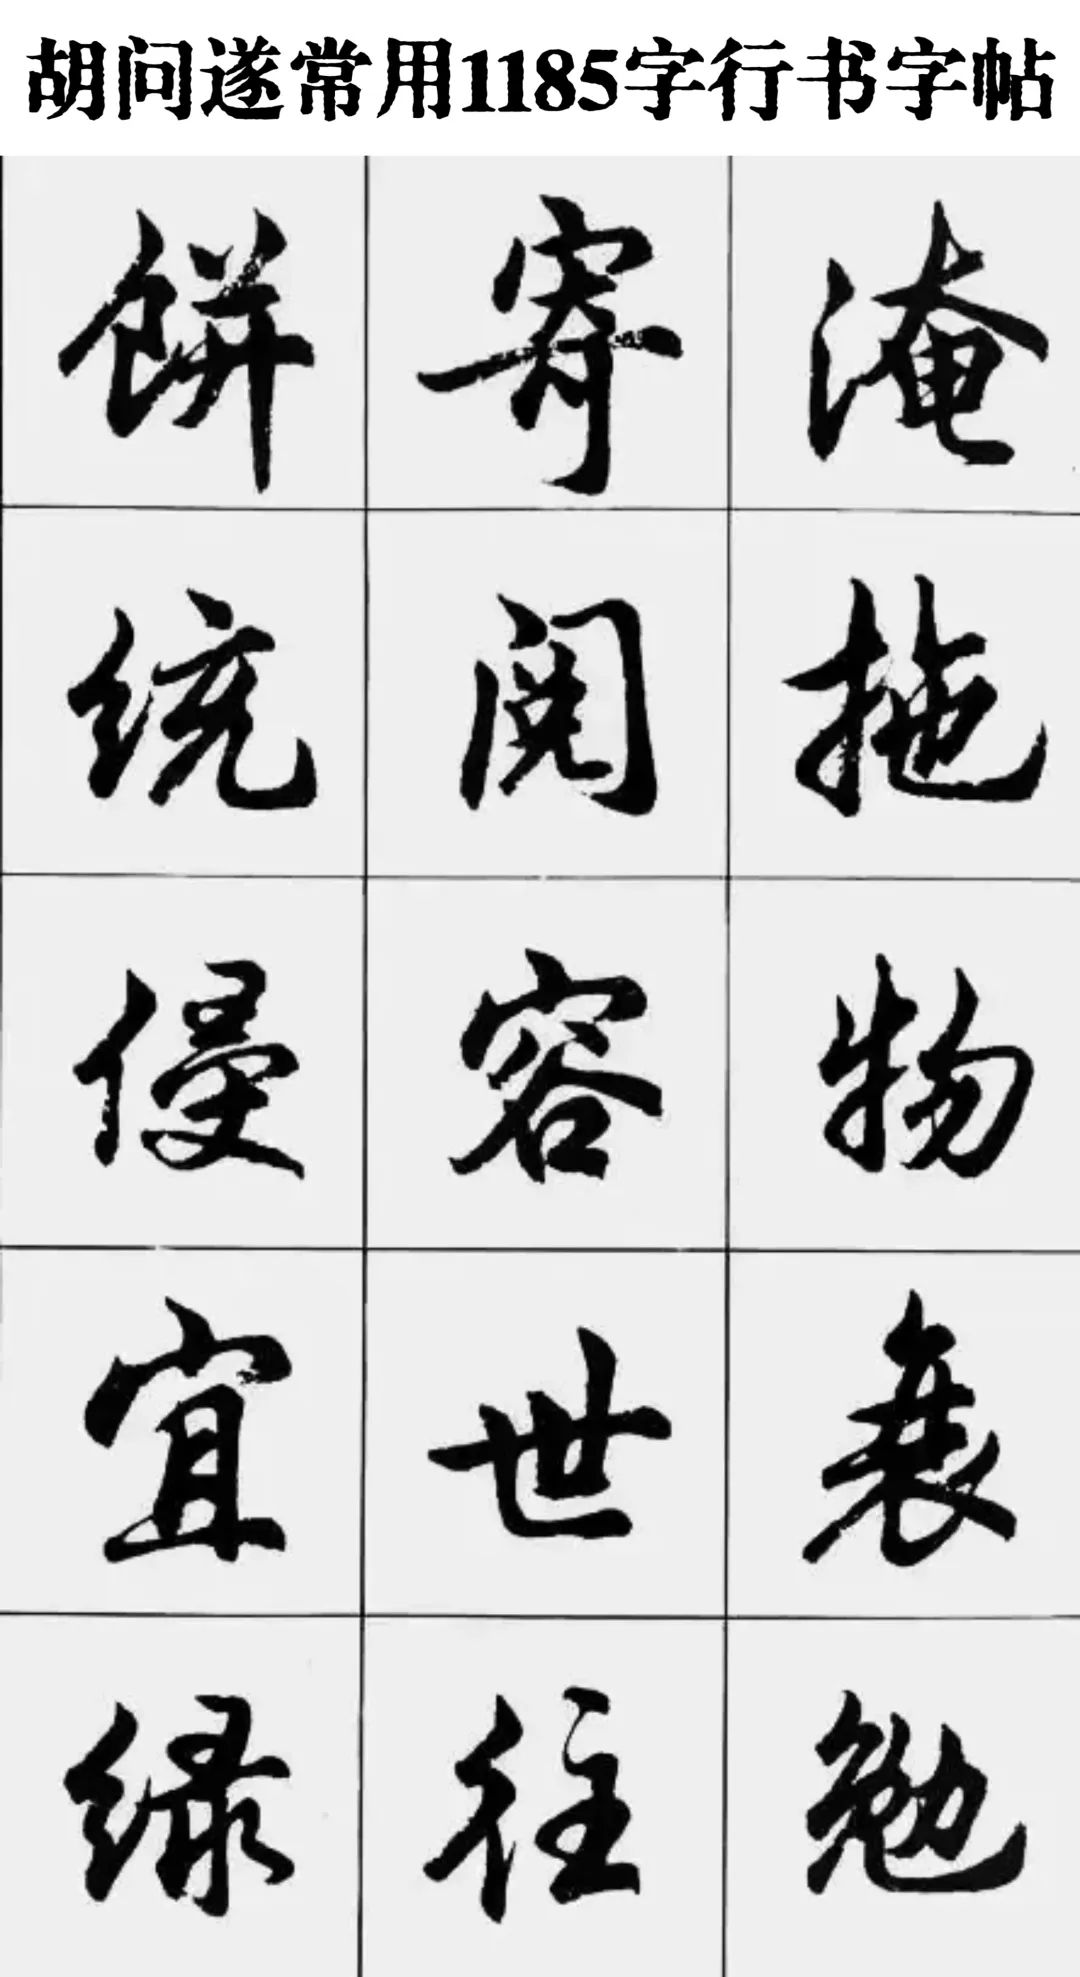 胡问遂常用1185字行书字帖
饼寄淹
统阅拖
侵容物
宜世衰
绿往勉